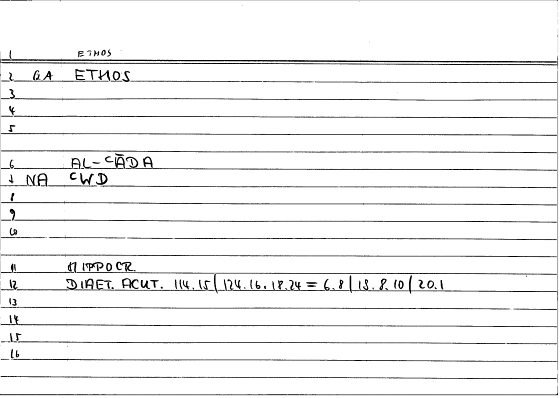 1 ETHOS
2 GA ETHOS
3
4
5
6 AL-ᶜĀDA
↓ NA ᶜWD
8
9
10
11 HIPPOCR.
12 DIAET. ACUT. 114.15 | 124.16.18.24 = 6.8 | 15.8.10 | 20.1
13
14
15
16